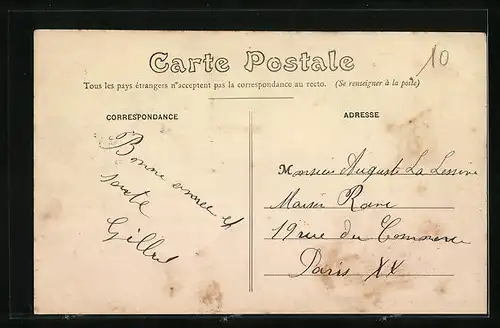 Carte Postale
10
Tous les pays étrangers n'acceptent pas la correspondance au recto. (Se renseigner à la poste)
CORRESPONDANCE
Bonne année et
santé
Gilles
ADRESSE
Monsieur Auguste La Lessive
Maison
19 rue du Commerce
Paris XV